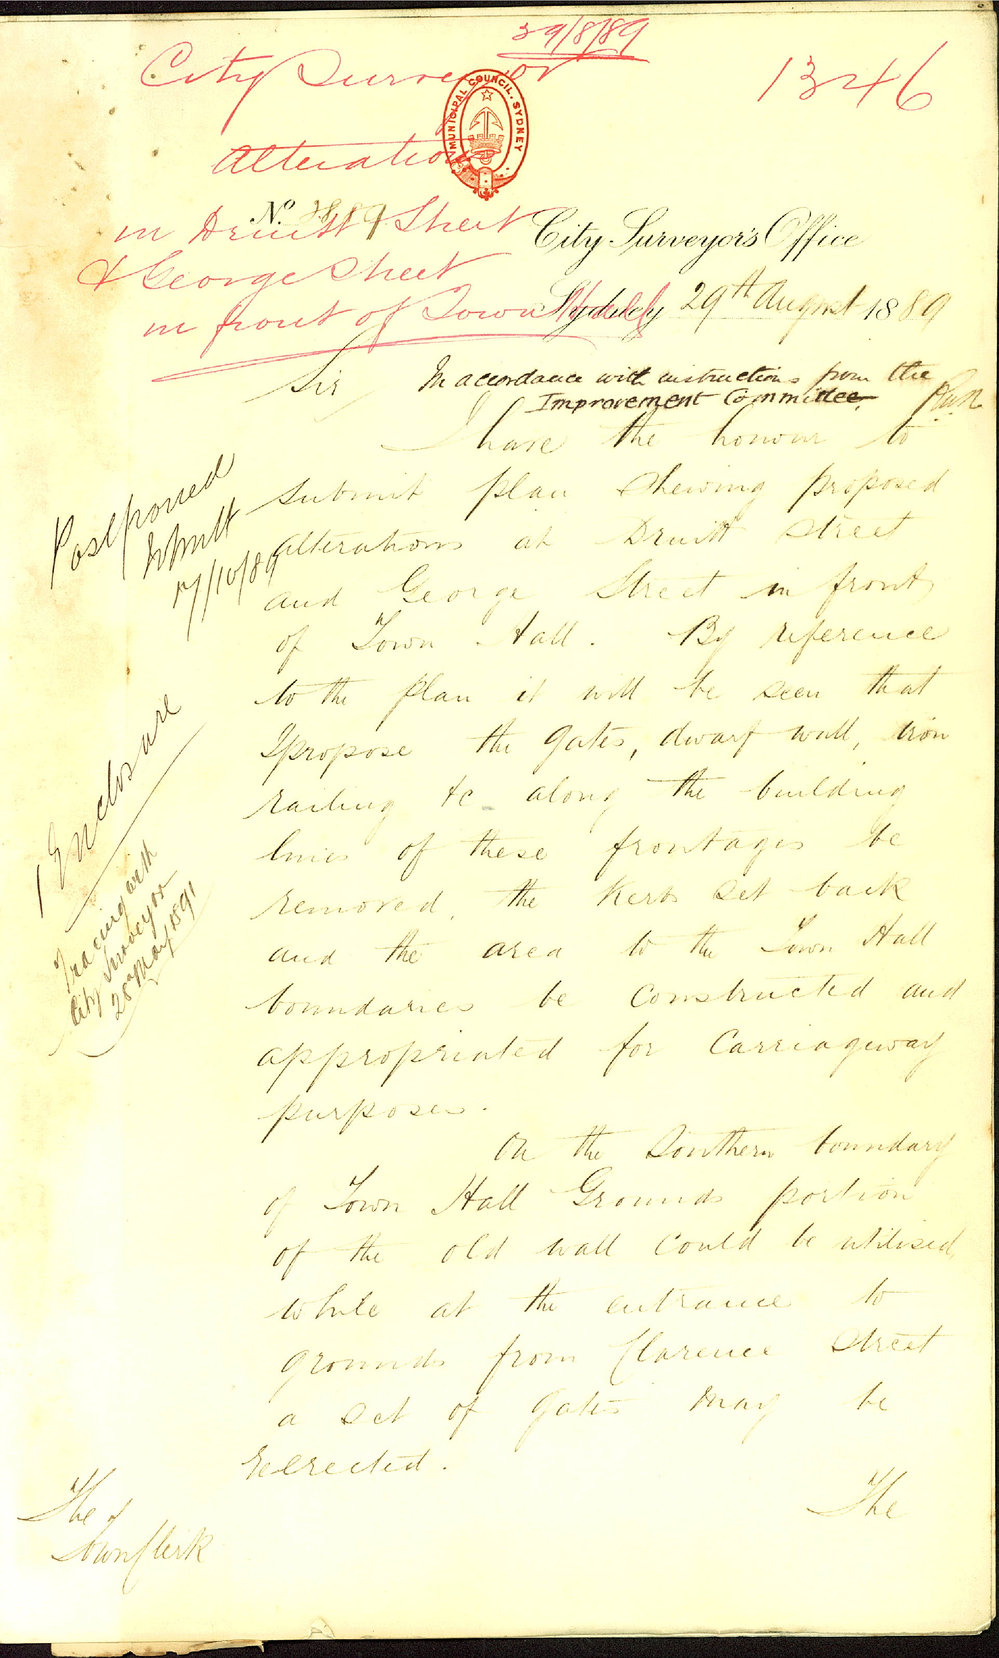 29/8/89
City Surveyor
1346
Alteration
in Druitt Street
& George Street
in front of Town Hall
MUNICIPAL COUNCIL. SYDNEY
No. 89
City Surveyor's Office
Sydney 29th August 1889
Sir
In accordance with instructions from the
Improvement Committee.
I have the honour to
submit plan shewing proposed
alterations at Druitt Street
and George Street in front
of Town Hall. By reference
to the plan it will be seen that
I propose the gates, dwarf wall, iron
railing &c along the building
lines of these frontages be
removed, the Kerb set back
and the area to the Town Hall
boundaries be constructed and
appropriated for Carriageway
purposes.
On the Southern boundary
of Town Hall Grounds portion
of the old wall could be utilised
while at the entrance to
grounds from Clarence Street
a set of gates may be
reerected.
The
The
Town Clerk
Postponed
17/10/89
1 Enclosure
Tracing with
City Surveyor
28 May 1891